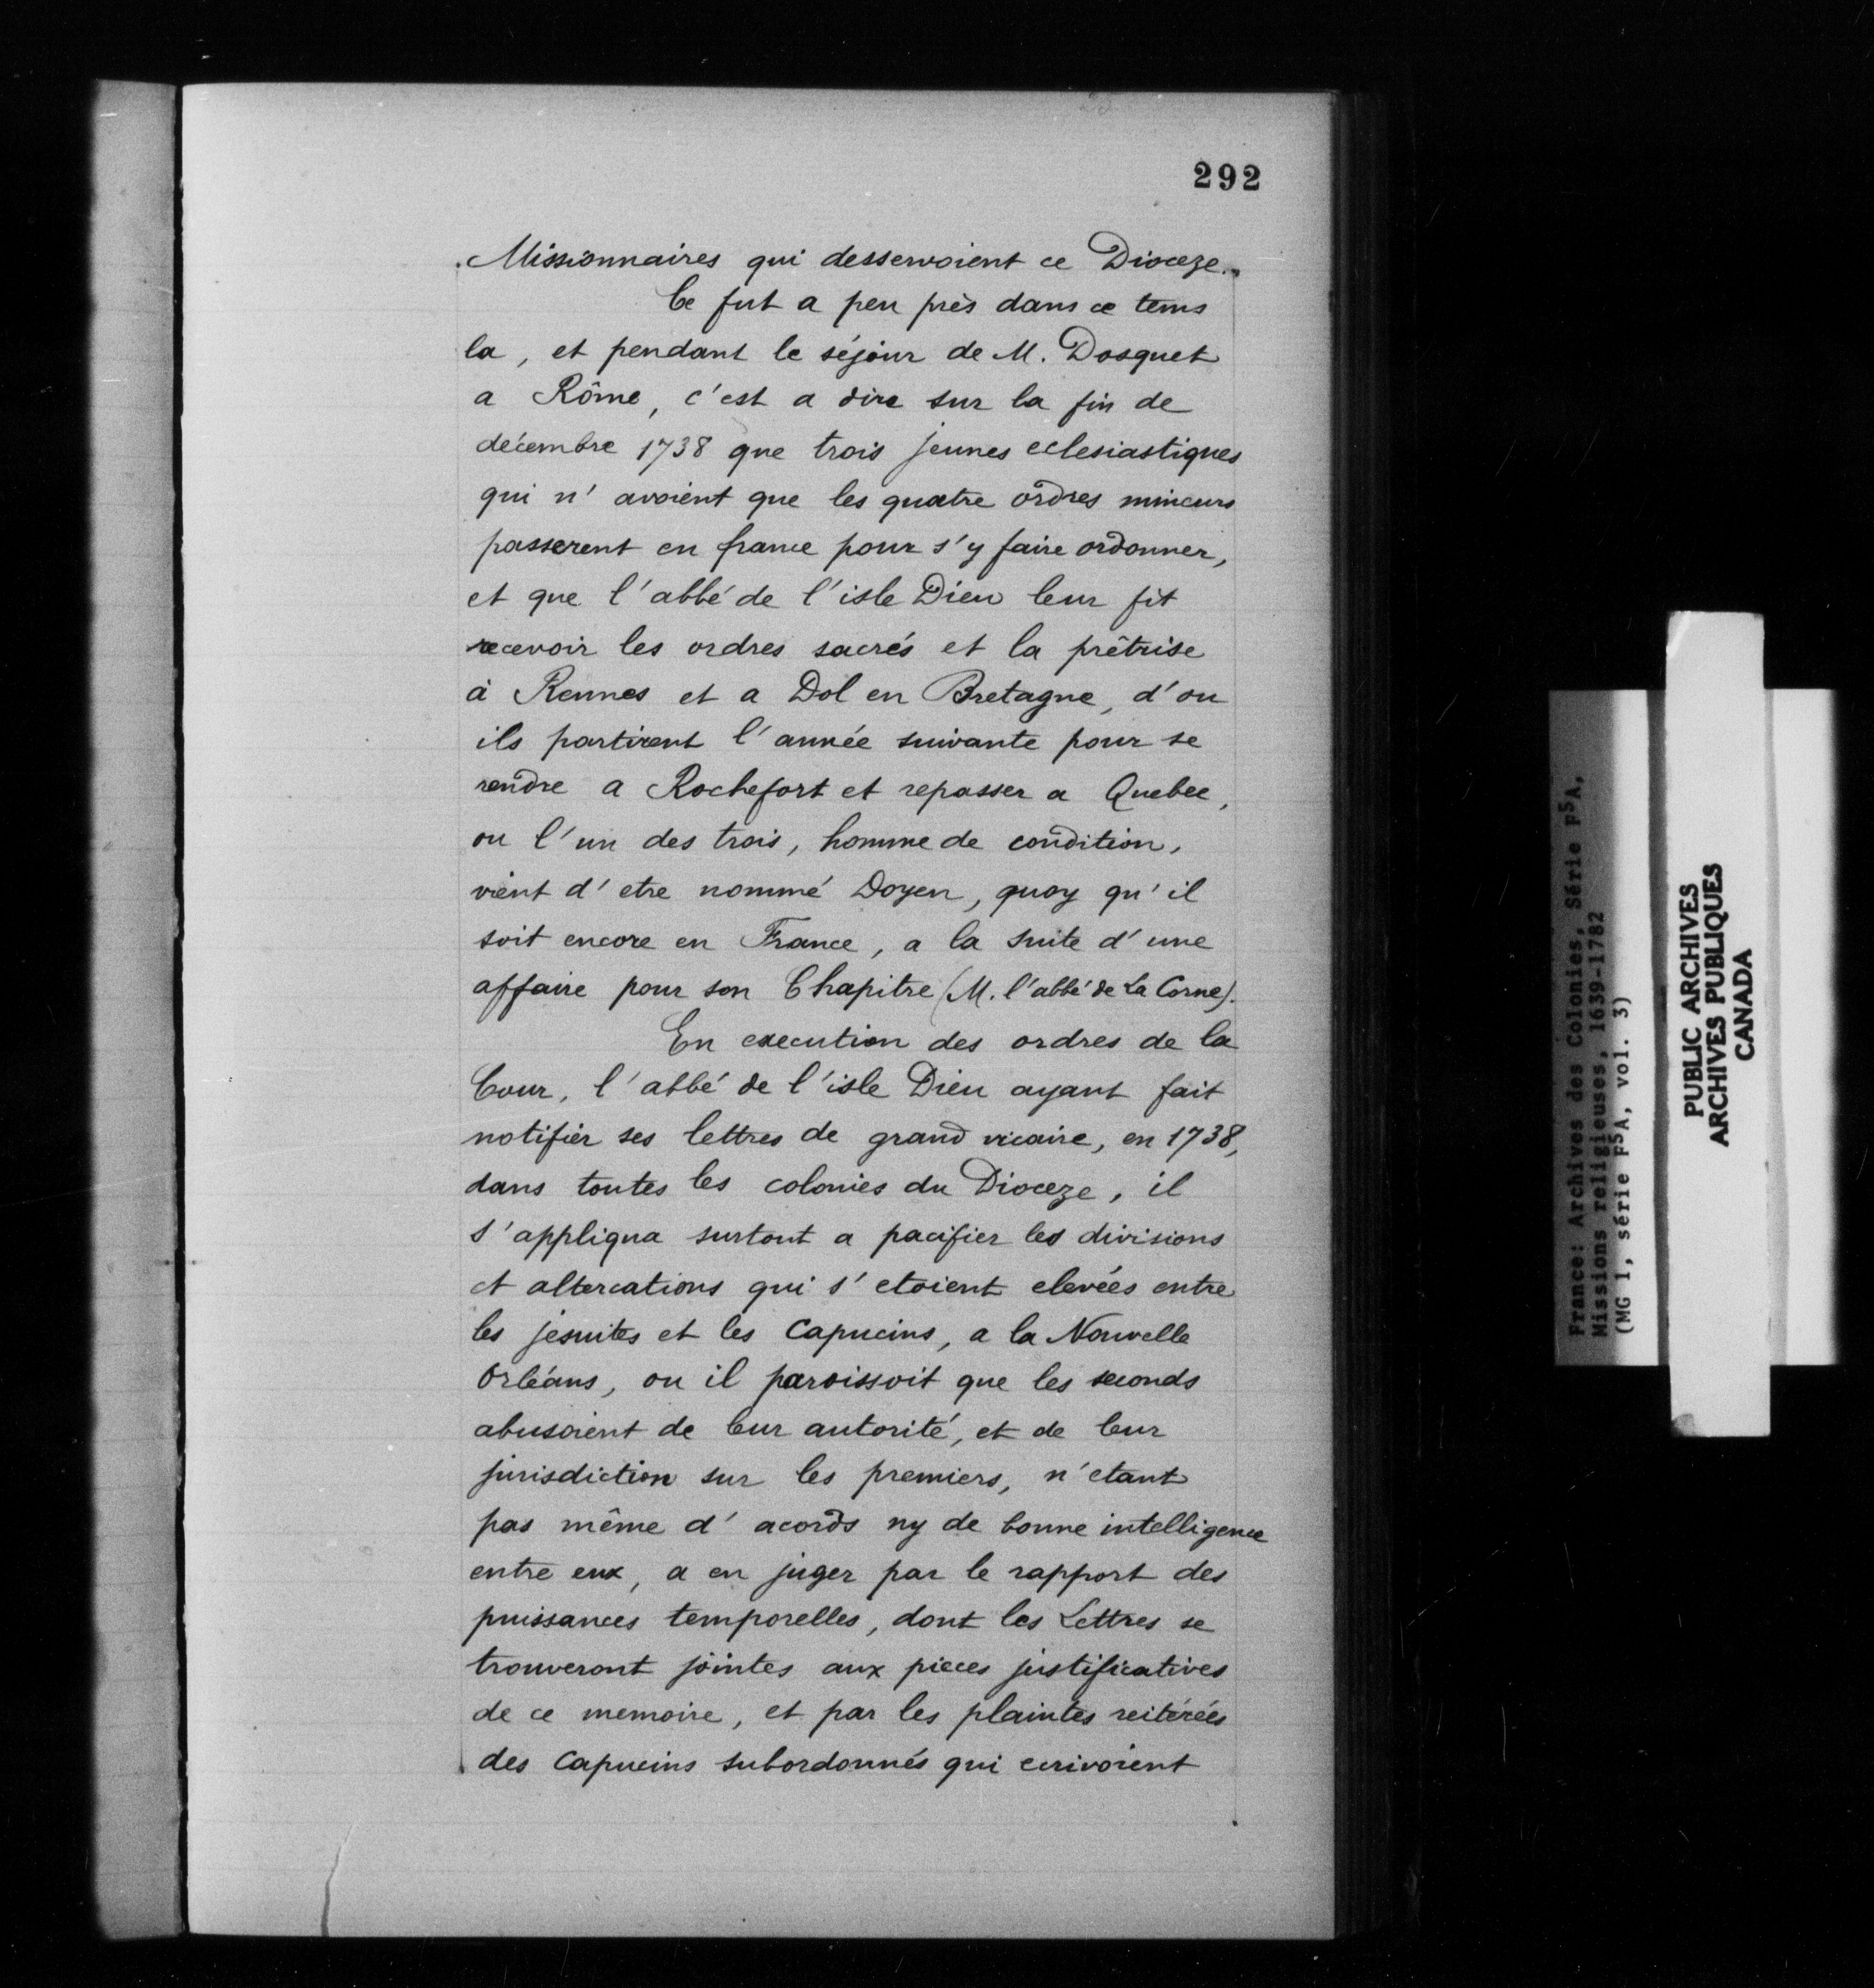 292
Missionnaires qui desservoient ce Dioceze.
Ce fut a peu près dans ce tems
la, et pendant le séjour de M. Dosquet
a Rôme, c'est a dire sur la fin de
décembre 1738 que trois jeunes eclesiastiques
qui n' avoient que les quatre ordres mineurs
passerent en france pour s'y faire ordonner,
et que l'abbé de l'isle Dieu leur fit
recevoir les ordres sacrés et la prêtrise
à Rennes et a Dol en Bretagne, d'ou
ils partirent l'année suivante pour se
rendre a Rochefort et repasser a Quebec,
ou l'un des trois, homme de condition,
vient d'etre nommé Doyen, quoy qu'il
soit encore en France, a la suite d'une
affaire pour son Chapitre (M. l'abbé de La Corne).
En execution des ordres de la
Cour, l'abbé de l'isle Dieu ayant fait
notifier ses lettres de grand vicaire, en 1738,
dans toutes les colonies du Dioceze, il
s'appliqua surtout a pacifier les divisions
et altercations qui s'etoient elevées entre
les jesuites et les Capucins, a la Nouvelle
Orléans, ou il paroissoit que les seconds
abusoient de leur autorité, et de leur
jurisdiction sur les premiers, n'etant
pas même d'acords ny de bonne intelligence
entre eux, a en juger par le rapport des
puissances temporelles, dont les Lettres se
trouveront jointes aux pieces justificatives
de ce memoire, et par les plaintes reitérées
des Capucins subordonnés qui ecrivoient
France: Archives des Colonies, Série F5A,
Missions religieuses, 1639-1782
(MG 1, série F5A, vol. 3)
PUBLIC ARCHIVES
ARCHIVES PUBLIQUES
CANADA